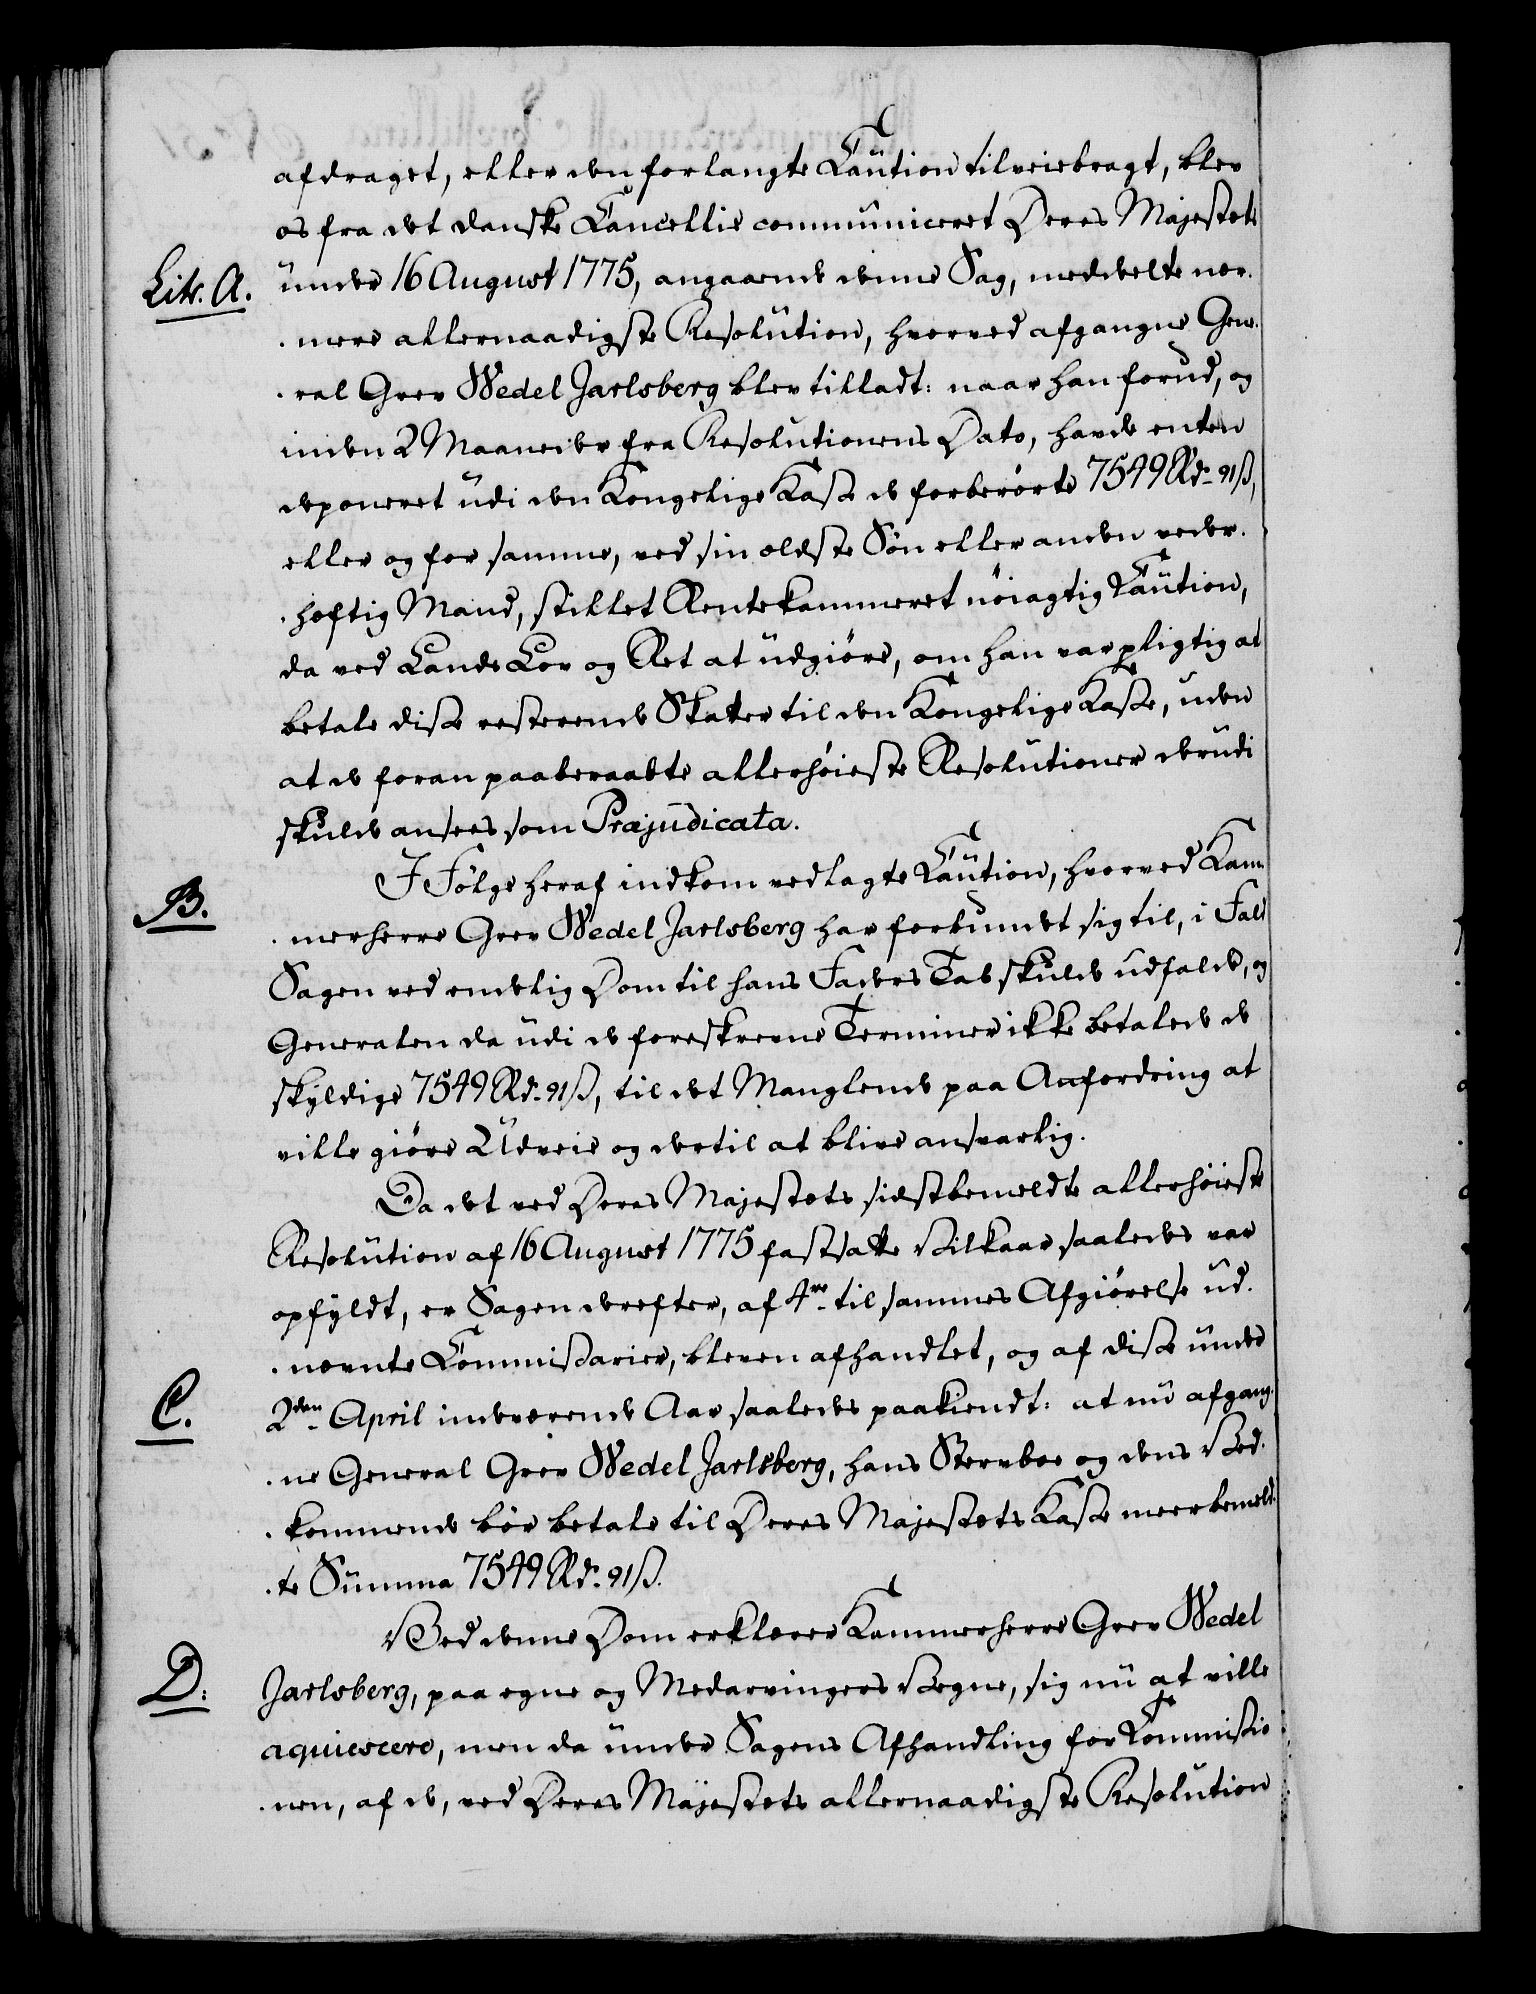 afdraget, eller den forlangte Caution tilveiebragt, blev
os fra det danske Cancellie communiceret Deres Majestets
Litr. A. under 16 August 1775, angaaende denne Sag, meddeelte nær-
mere allernaadigste Resolution, hvorved afgangne Gene-
ral Grev Wedel Jarlsberg blev tilladt: naar han forud, og
inden 2 Maaneder fra Resolutionens Dato, havde enten
deponeret udi den Kongelige Kasse de forberørte 7549 Rd. 91 ß,
eller og for samme, ved sin ældste Søn eller anden veder-
hæftig Mand, stillet Rentekammeret nöiagtig Caution,
da ved Lands Lov og Ret at udgiöre, om han var pligtig at
betale disse resterende Skatter til den Kongelige Kasse, uden
at de foran paaberaabte allerhöieste Resolutioner derudi
skulde ansees som Præjudicata.
B. I Fölge heraf indkom vedlagte Caution, hvorved Kam-
merherre Grev Wedel Jarlsberg har forbundet sig til, i Fald
Sagen ved endelig Dom til hans Faders Tab skulde udfalde, og
Generalen da udi de foreskrevne Terminer ikke betalede de
skyldige 7549 Rd. 91 ß, til det Manglende paa Anfordring at
ville giöre Udveie og dertil at blive ansvarlig.
Da det ved Deres Majestets sidstbemeldte allerhöieste
Resolution af 16 August 1775 fastsatte Vilkaar saaledes var
opfyldt, er Sagen derefter, af 4re til sammes Afgiörelse ud-
nævnte Commissarier, bleven afhandlet, og af disse under
C. 2den April indeværende Aar saaledes paakiendt: at nu afgang-
ne General Grev Wedel Jarlsberg, hans Sterboe og dens Ved-
kommende bör betale til Deres Majestets Kasse meerbemeld-
te Summa 7549 Rd. 91 ß.
D: Ved denne Dom erklærer Kammerherre Grev Wedel
Jarlsberg, paa egne og Medarvingers Vegne, sig nu at ville
aquiescere, men da under Sagens Afhandling for Commissio-
nen, af de, ved Deres Majestets allernaadigste Resolution